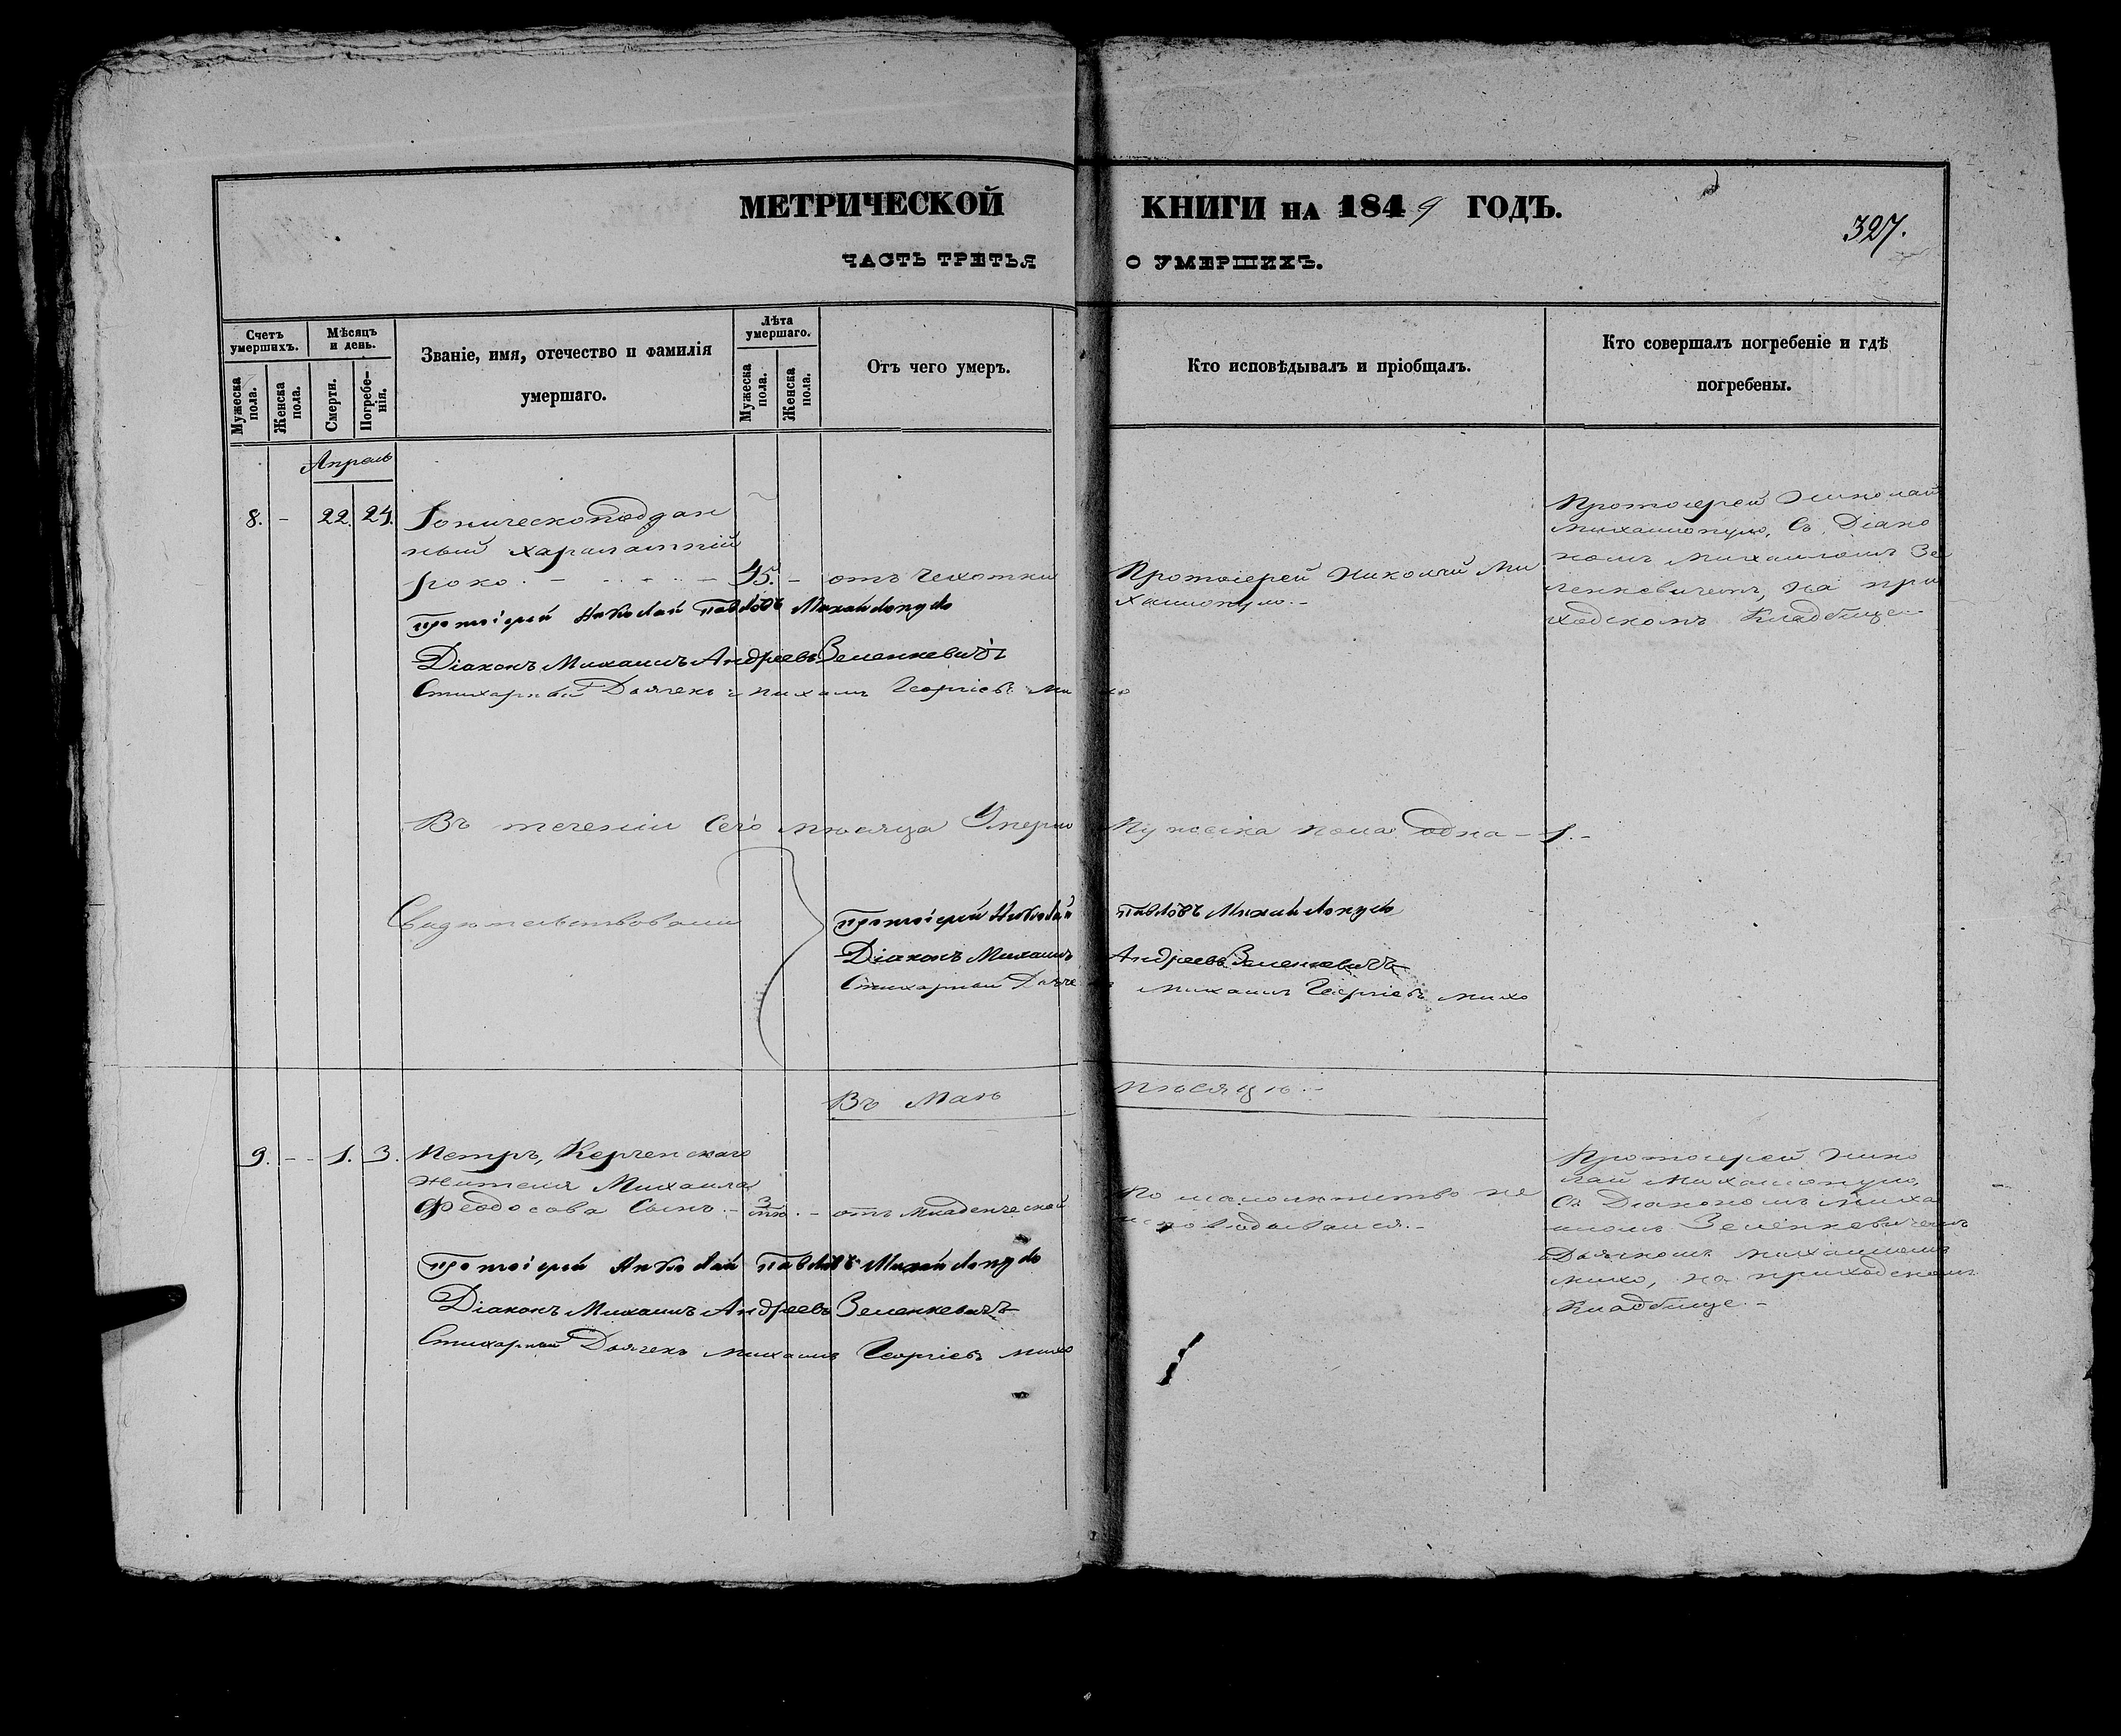 МЕТРИЧЕСКОЙ КНИГИ НА 1849 ГОДЪ.
327.
ЧАСТЬ ТРЕТЬЯ О УМЕРШИХЪ.
Счетъ умершихъ.
Мужеска пола.
Женска пола.
Мѣсяцъ и день.
Смерти.
Погребенія.
Званіе, имя, отечество и фамилія
умершаго.
Лѣта умершаго.
Мужеска пола.
Женска пола.
Отъ чего умеръ.
Кто исповѣдывалъ и пріобщалъ.
Кто совершалъ погребеніе и гдѣ
погребены.
Апрель
8. - 22. 24.
Іоническоподдан
ный Харалампій
45. - отъ Чехотки
Протоіерей Николай Ми
хаилопуло.-
Протоіерей Николай
Михаилопуло, Съ Діако
номъ Михаиломъ Зе
ленкевичемъ, на при
ходскомъ Кладбище-
Протоіерей Николай Павловъ Михайлопуло
Діаконъ Михаилъ Андреевъ Зеленкевичъ
Стихарный Дьячекъ Михаилъ Георгіевъ Михо
Въ теченіи Сего мѣсяца Умерло Мужеска пола одна - 1.-
Свидѣтельствовали
Протоіерей Николай Павловъ Михайлопуло
Діаконъ Михаилъ Андреевъ Зеленкевичъ
Стихарный Дьячекъ Михаилъ Георгіевъ Михо
Въ Маѣ мѣсяцѣ.-
9. - - 1. 3.
Петръ, Керченскаго
жителя Михаила
Феодосова Сынъ. - 3 - отъ Младенческой
По малолѣтство не
исповѣдывался.-
Протоіерей Нико
лай Михаилопуло,
Съ Діакономъ Миха
иломъ Зеленкевичемъ
Дьячкомъ Михаиломъ
Михо, на приходскомъ
Кладбище.-
Протоіерей Николай Павловъ Михайлопуло
Діаконъ Михаилъ Андреевъ Зеленкевичъ
Стихарный Дьячекъ Михаилъ Георгіевъ Михо